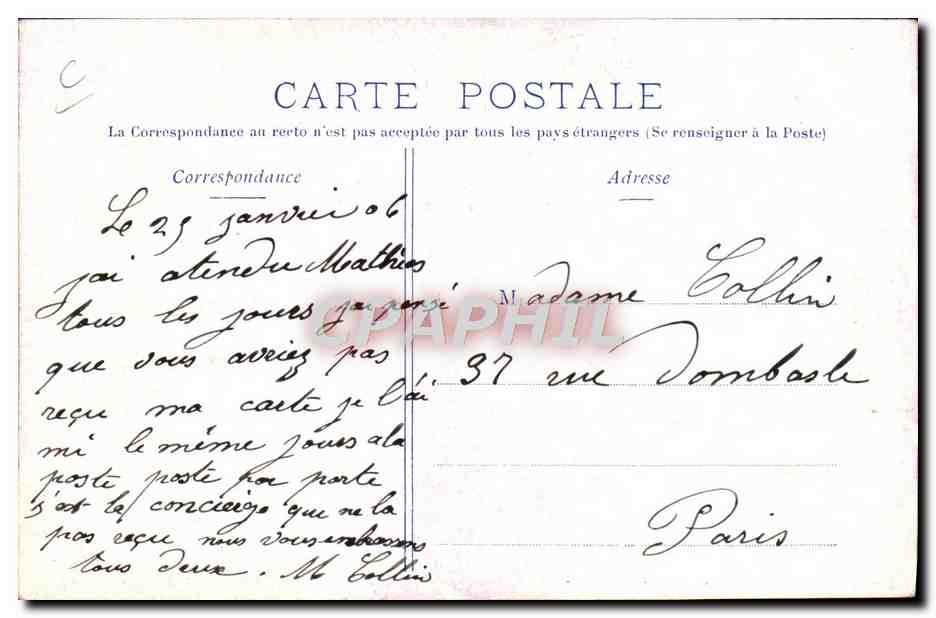 C
CARTE POSTALE
La Correspondance au recto n'est pas acceptée par tous les pays étrangers (Se renseigner à la Poste)
Correspondance
Le 25 janvier 06
jai atendu Mathias
tous les jours jai pensé
que vous avriez pas
reçu ma carte je l'ai
mi le même jours a la
poste poste par porte
s'est la concierge que ne la
pas reçu nous vous embrassons
tous deux. M Collin
Adresse
Madame Collin
37 rue Dombasle
Paris
CPAPHIL